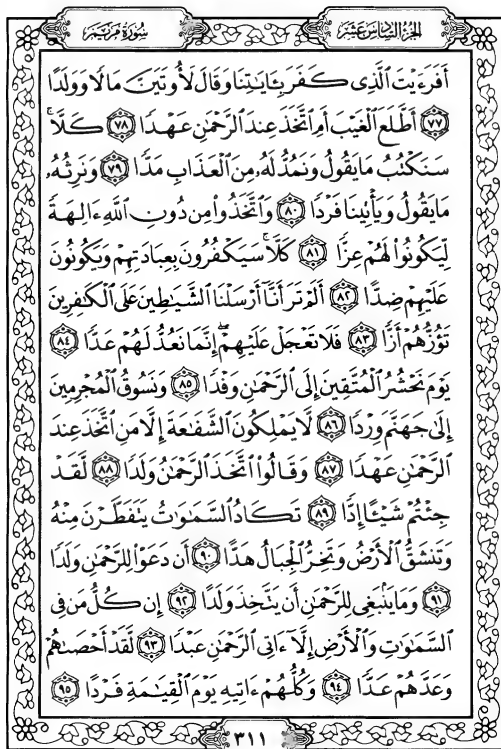 الجُزْءُ السَّادِسَ عَشَرَ
سُورَةُ مَرْيَمَ
أَفَرَءَيْتَ ٱلَّذِى كَفَرَ بِـَٔايَٰتِنَا وَقَالَ لَأُوتَيَنَّ مَالًا وَوَلَدًا
٧٧ أَطَّلَعَ ٱلْغَيْبَ أَمِ ٱتَّخَذَ عِندَ ٱلرَّحْمَٰنِ عَهْدًا ٧٨ كَلَّا ۚ
سَنَكْتُبُ مَا يَقُولُ وَنَمُدُّ لَهُۥ مِنَ ٱلْعَذَابِ مَدًّا ٧٩ وَنَرِثُهُۥ
مَا يَقُولُ وَيَأْتِينَا فَرْدًا ٨٠ وَٱتَّخَذُوا۟ مِن دُونِ ٱللَّهِ ءَالِهَةً
لِّيَكُونُوا۟ لَهُمْ عِزًّا ٨١ كَلَّا ۚ سَيَكْفُرُونَ بِعِبَادَتِهِمْ وَيَكُونُونَ
عَلَيْهِمْ ضِدًّا ٨٢ أَلَمْ تَرَ أَنَّآ أَرْسَلْنَا ٱلشَّيَٰطِينَ عَلَى ٱلْكَٰفِرِينَ
تَؤُزُّهُمْ أَزًّا ٨٣ فَلَا تَعْجَلْ عَلَيْهِمْ ۖ إِنَّمَا نَعُدُّ لَهُمْ عَدًّا ٨٤
يَوْمَ نَحْشُرُ ٱلْمُتَّقِينَ إِلَى ٱلرَّحْمَٰنِ وَفْدًا ٨٥ وَنَسُوقُ ٱلْمُجْرِمِينَ
إِلَىٰ جَهَنَّمَ وِرْدًا ٨٦ لَّا يَمْلِكُونَ ٱلشَّفَٰعَةَ إِلَّا مَنِ ٱتَّخَذَ عِندَ
ٱلرَّحْمَٰنِ عَهْدًا ٨٧ وَقَالُوا۟ ٱتَّخَذَ ٱلرَّحْمَٰنُ وَلَدًا ٨٨ لَّقَدْ
جِئْتُمْ شَيْـًٔا إِدًّا ٨٩ تَكَادُ ٱلسَّمَٰوَٰتُ يَتَفَطَّرْنَ مِنْهُ
وَتَنشَقُّ ٱلْأَرْضُ وَتَخِرُّ ٱلْجِبَالُ هَدًّا ٩٠ أَن دَعَوْا۟ لِلرَّحْمَٰنِ وَلَدًا
٩١ وَمَا يَنۢبَغِى لِلرَّحْمَٰنِ أَن يَتَّخِذَ وَلَدًا ٩٢ إِن كُلُّ مَن فِى
ٱلسَّمَٰوَٰتِ وَٱلْأَرْضِ إِلَّآ ءَاتِى ٱلرَّحْمَٰنِ عَبْدًا ٩٣ لَّقَدْ أَحْصَىٰهُمْ
وَعَدَّهُمْ عَدًّا ٩٤ وَكُلُّهُمْ ءَاتِيهِ يَوْمَ ٱلْقِيَٰمَةِ فَرْدًا ٩٥
٣١١